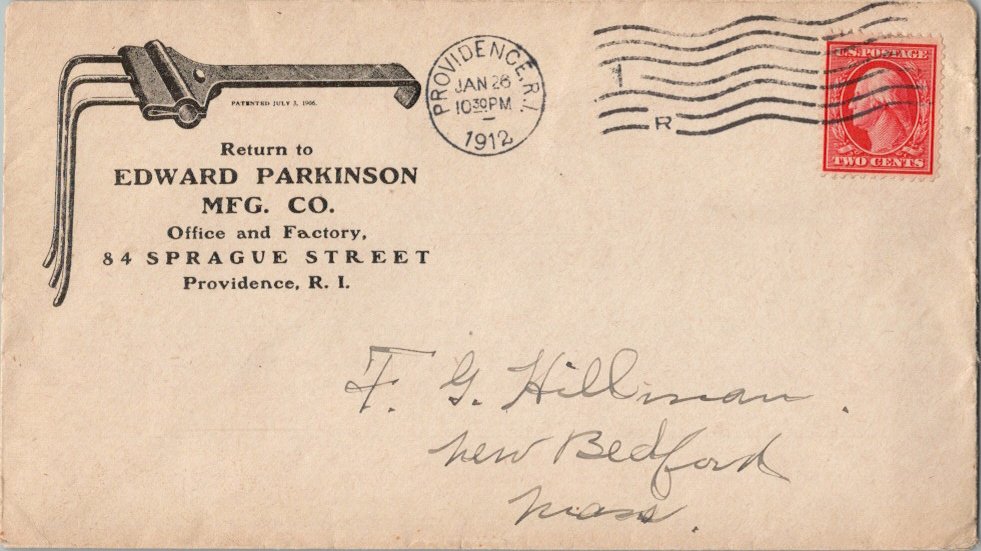 PATENTED JULY 3, 1906.
Return to
EDWARD PARKINSON
MFG. CO.
Office and Factory,
84 SPRAGUE STREET
Providence, R. I.
PROVIDENCE, R.I.
JAN 26
10 30 PM
1912
1
R
U.S. POSTAGE
TWO CENTS
F. G. Hillman.
New Bedford
Mass.